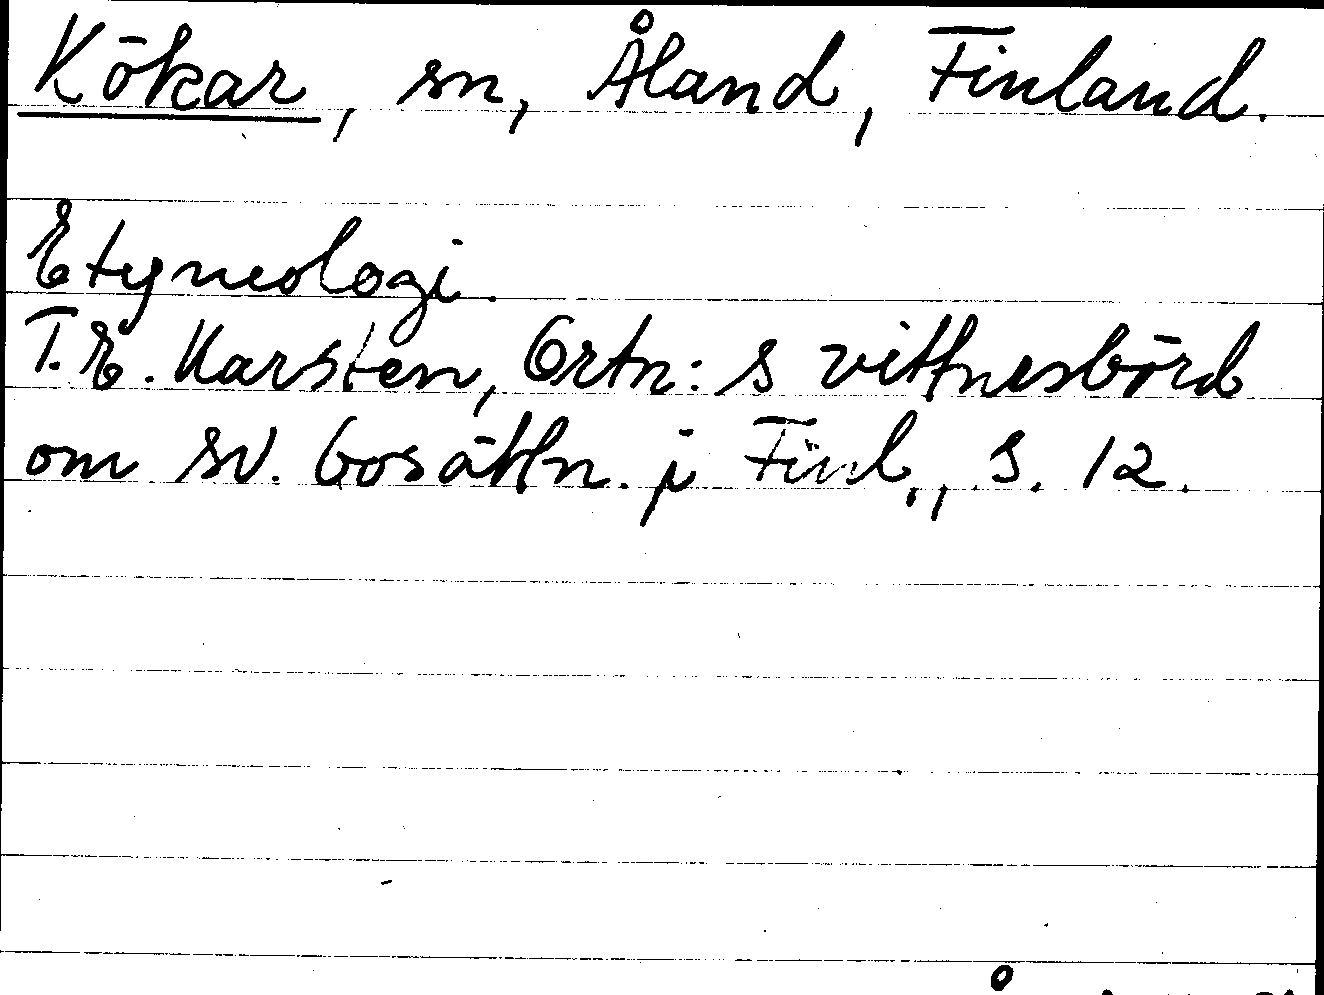 Kökar, sn, Åland, Finland.
Etymologi.
T.E. Karsten, Ortn:s vittnesbörd
om sv. bosättn. i Finl., s. 12.